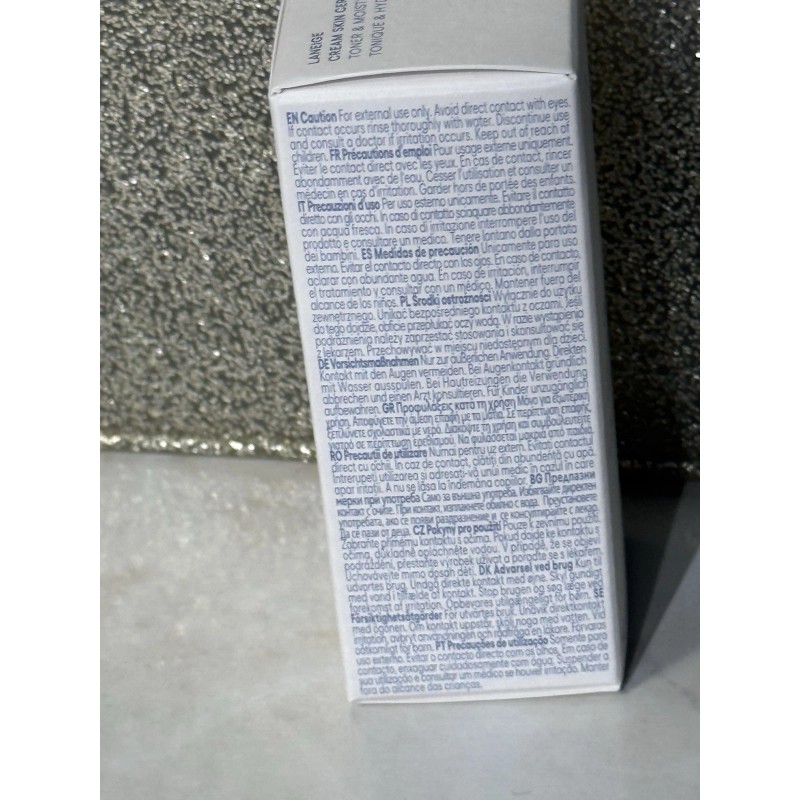 LANEIGE
CREAM SKIN CER
TONER & MOIST
TONIQUE & HYD
EN Caution For external use only. Avoid direct contact with eyes.
If contact occurs rinse thoroughly with water. Discontinue use
and consult a doctor if irritation occurs. Keep out of reach of
children. FR Précautions d'emploi Pour usage externe uniquement.
Éviter le contact direct avec les yeux. En cas de contact, rincer
abondamment avec de l'eau. Cesser l'utilisation et consulter un
médecin en cas d'irritation. Garder hors de portée des enfants.
IT Precauzioni d'uso Per uso esterno unicamente. Evitare il contatto
diretto con gli occhi. In caso di contatto sciacquare abbondantemente
con acqua fresca. In caso di irritazione interrompere l'uso del
prodotto e consultare un medico. Tenere lontano dalla portata
dei bambini. ES Medidas de precaución Únicamente para uso
externo. Evitar el contacto directo con los ojos. En caso de contacto,
aclarar con abundante agua. En caso de irritación, interrumpir
el tratamiento y consultar con un médico. Mantener fuera del
alcance de los niños. PL Środki ostrożności Wyłącznie do użytku
zewnętrznego. Unikać bezpośredniego kontaktu z oczami. Jeśli
do tego dojdzie, obficie przepłukać oczy wodą. W razie wystąpienia
podrażnienia należy zaprzestać stosowania i skonsultować się
z lekarzem. Przechowywać w miejscu niedostępnym dla dzieci.
DE Vorsichtsmaßnahmen Nur zur äußerlichen Anwendung. Direkten
Kontakt mit den Augen vermeiden. Bei Augenkontakt gründlich
mit Wasser ausspülen. Bei Hautreizungen die Verwendung
abbrechen und einen Arzt konsultieren. Für Kinder unzugänglich
aufbewahren. GR Προφυλάξεις κατά τη χρήση Μόνο για εξωτερική
χρήση. Αποφύγετε την άμεση επαφή με τα μάτια. Σε περίπτωση επαφής,
ξεπλύνετε σχολαστικά με νερό. Διακόψτε τη χρήση και συμβουλευτείτε
γιατρό σε περίπτωση ερεθισμού. Να φυλάσσεται μακριά από παιδιά.
RO Precautii de utilizare Numai pentru uz extern. Evitați contactul
direct cu ochii. În caz de contact, clătiți din abundență cu apă.
Întrerupeți utilizarea și adresați-vă unui medic în cazul în care
apar iritații. A nu se lăsa la îndemâna copiilor. BG Предпазни
мерки при употреба Само за външна употреба. Избягвайте директен
контакт с очите. При контакт, изплакнете обилно с вода. Преустановете
употребата, ако се появи раздразнение и се консултирайте с лекар.
Да се пази от деца. CZ Pokyny pro použití Pouze k zevnímu použití.
Zabraňte přímému kontaktu s očima. Pokud dojde ke kontaktu s
očima, důkladně opláchněte vodou. V případě, že se objeví
podráždění, přestaňte výrobek užívat a poraďte se s lékařem.
Uchovávejte mimo dosah dětí. DK Advarsel ved brug Kun til
udvortes brug. Undgå direkte kontakt med øjne. Skyl grundigt
med vand i tilfælde af kontakt. Stop brugen og søg læge ved
forekomst af irritation. Opbevares utilgængeligt for børn. SE
Försiktighetsåtgärder För utvortes bruk. Undvik direktkontakt
med ögonen. Om kontakt uppstår, skölj noga med vatten. Vid
irritation, avbryt användningen och rådfråga en läkare. Förvaras
oåtkomligt för barn. PT Precauções de utilização Somente para
uso externo. Evitar o contacto directo com os olhos. Em caso de
contacto, enxaguar cuidadosamente com água. Suspender a
sua utilização e consultar um médico se houver irritação. Manter
fora do alcance das crianças.